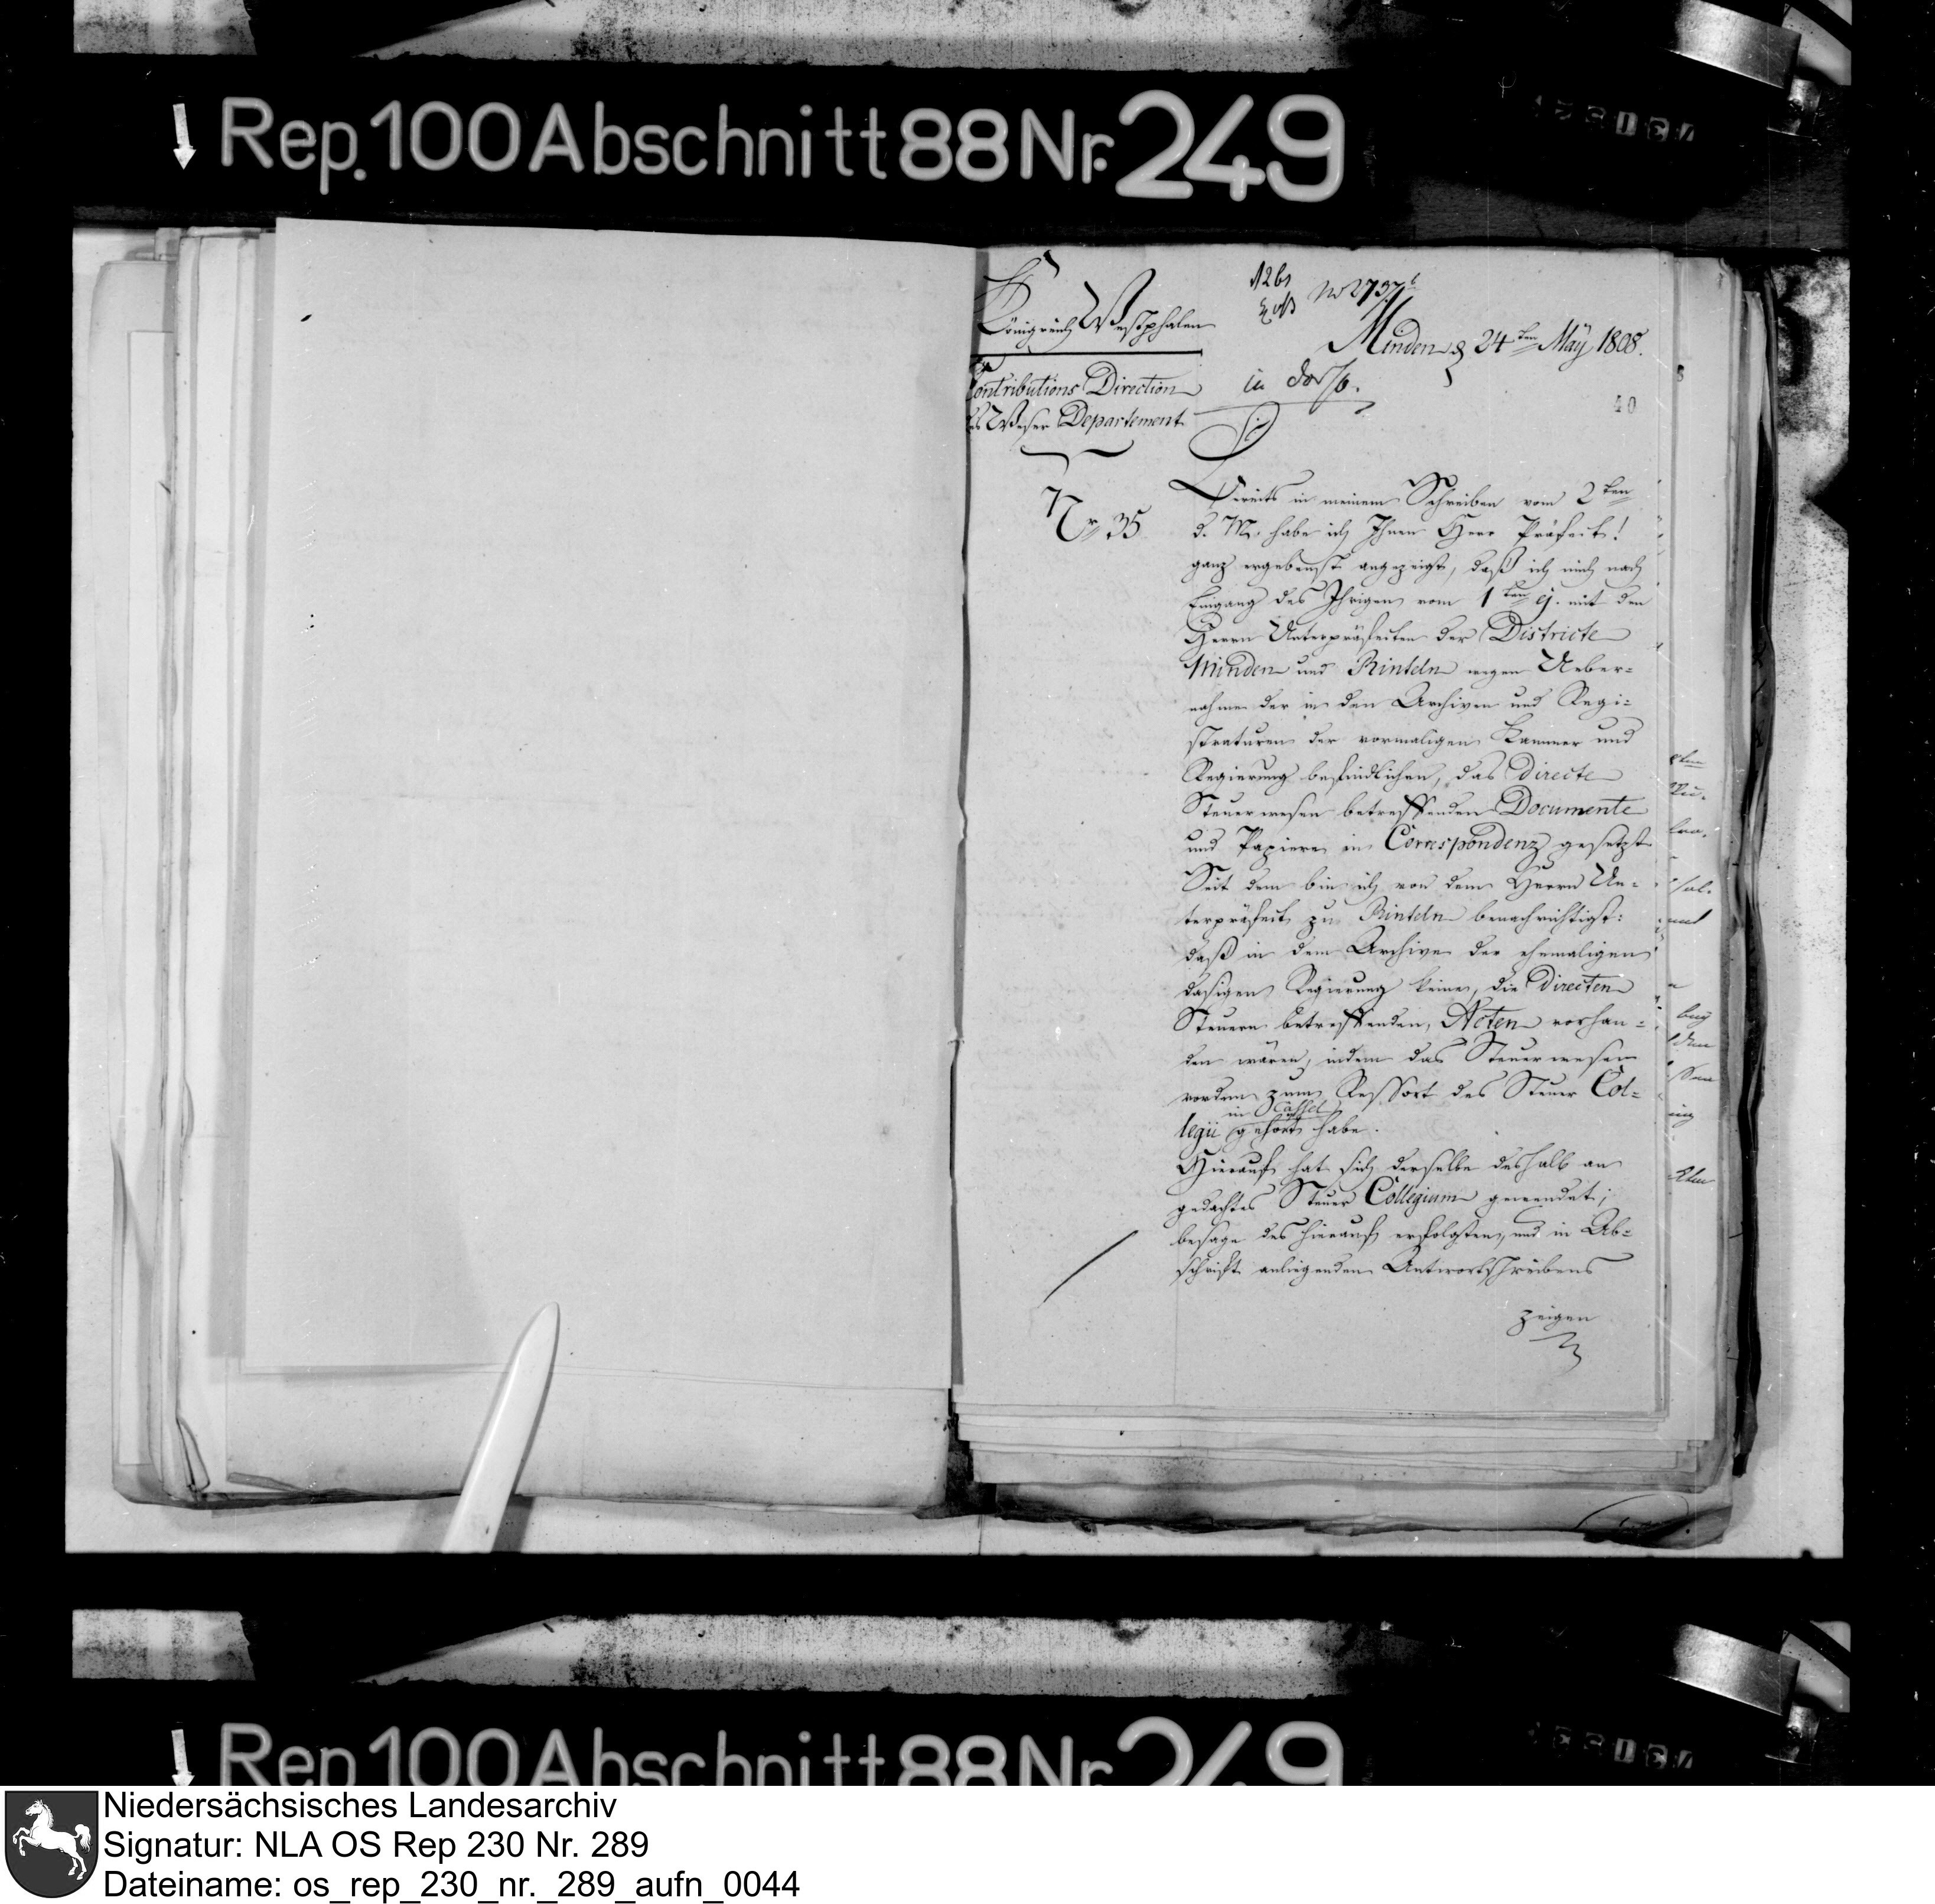 Rep. 100 Abschnitt 88 Nr. 249
Königreich Westphalen
No 2737
Minden d 24ten May 1808.
Contributions Direction
in dorso.
des Weser Departement
40
Nr. 35
Bereits in meinem Schreiben vom 2ten
d. M. habe ich Ihnen Herr Präfect!
ganz ergebenst angezeigt, daß ich mich nach
Eingang des Ihrigen vom 1ten ej. mit den
Herrn Unterpräfecten der Districte
Minden und Rinteln wegen Ueber-
nahme der in den Archiven und Regi-
straturen der vormaligen Kammer und
Regierung befindlichen, das directe
Steuerwesen betreffenden Documente
und Papiere in Correspondenz gesetzt
Seit dem bin ich von dem Herrn Un-
terpräfect zu Rinteln benachrichtigt:
daß in dem Archive der ehemaligen
dasigen Regierung keine, die directen
Steuern betreffenden, Acten vorhan-
den wären, indem das Steuerwesen
vordem zum Ressort des Steuer Col-
in Cassel
legii gehört habe.
Hierauf hat sich derselbe deshalb an
gedachtes Steuer Collegium gewendet;
besage des hierauf erfolgten, und in Ab-
schrift anliegenden Antwortschreibens
zeigen
Rep. 100 Abschnitt 88 Nr. 249
Niedersächsisches Landesarchiv
Signatur: NLA OS Rep 230 Nr. 289
Dateiname: os_rep_230_nr._289_aufn_0044